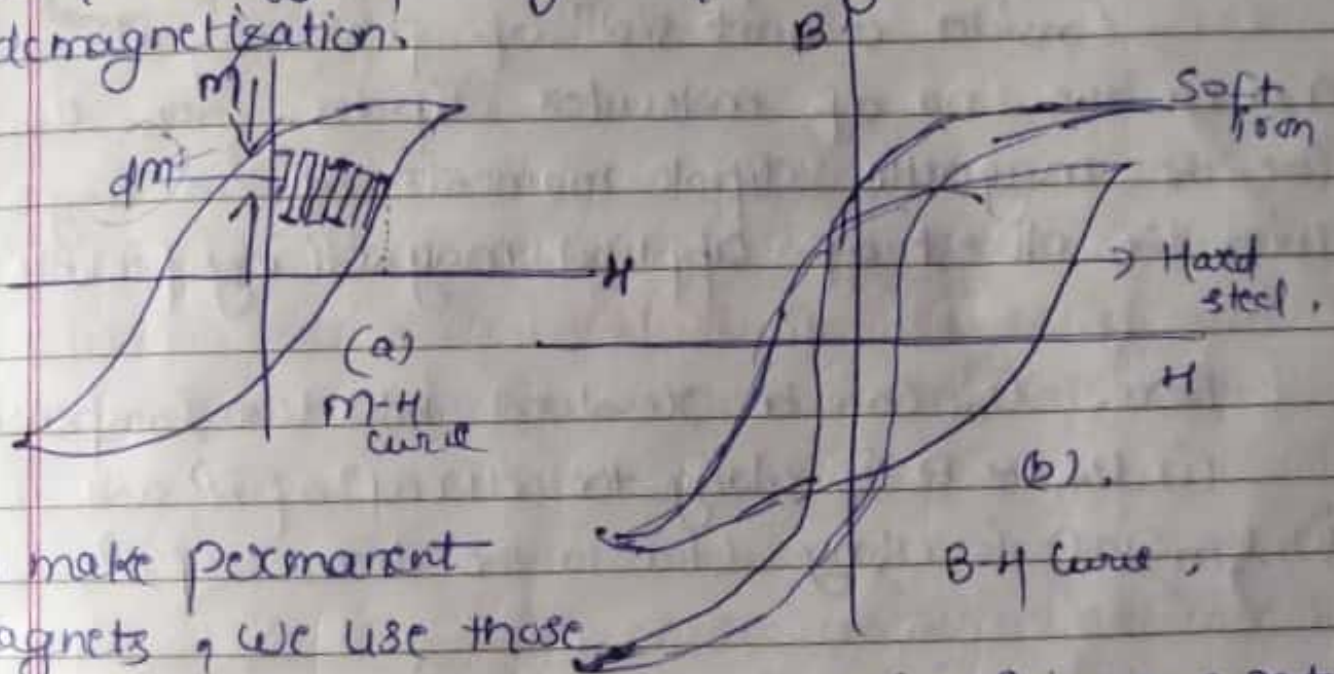 demagnetization.
M
dM
H
(a)
M-H
curve
B
Soft
iron
Hard
steel.
H
(b).
B-H Curve.
make permanent
agnets, we use those